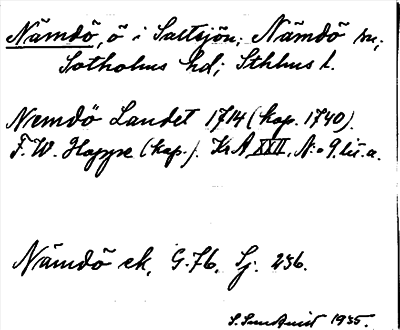 Nämdö, ö i Saltsjön; Nämdö sn;
Sotholms hd; Sthlms l.
Nemdö Landet 1714 (kop. 1740).
F. W. Hoppe (kop.). Kr A XXII, N:o 9. lit. a.
Nämdö ek, G. 76, Sj. 256.
S. Sundquist 1935.